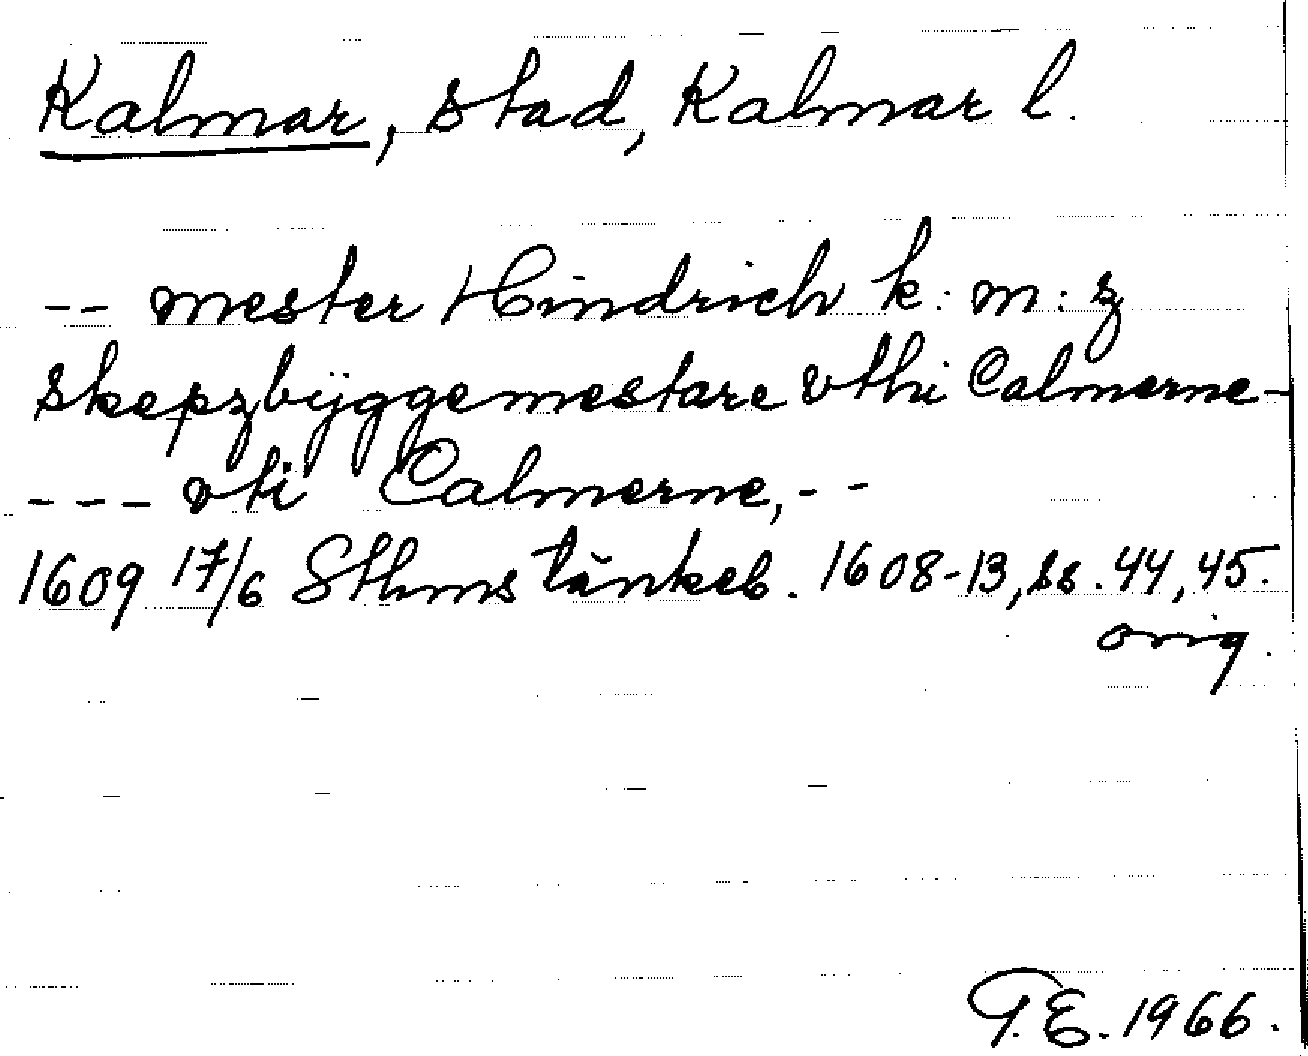 Kalmar, stad, Kalmar l.
-- mester Hindrich k: m: z
skepzbÿggemestare vthi Calmerne-
--- vti Calmerne, --
1609 17/6 Sthms tänkeb. 1608-13, ss. 44, 45.
orig.
G.E. 1966.